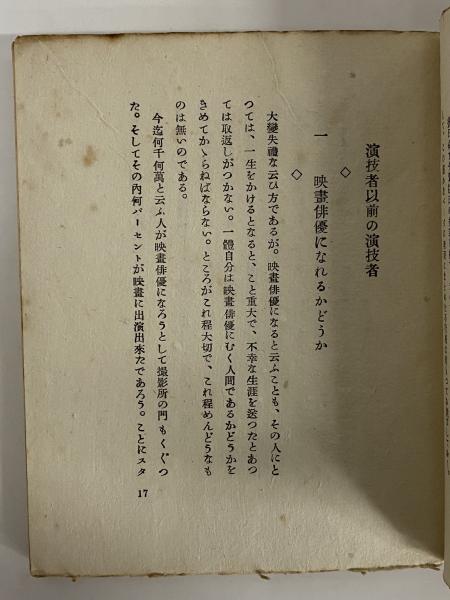 演技者以前の演技者
◇
一 映畫俳優になれるかどうか
◇
大變失禮な云ひ方であるが。映畫俳優になると云ふことも、その人にと
つては、一生をかけるとなると、こと重大で、不幸な生涯を送つたとあつ
ては取返しがつかない。一體自分は映畫俳優にむく人間であるかどうかを
きめてかゝらねばならない。ところがこれ程大切で、これ程めんどうなも
のは無いのである。
今迄何千何萬と云ふ人が映畫俳優になろうとして撮影所の門もくぐつ
た。そしてその內何パーセントが映畫に出演出來たであろう。ことにスタ
17